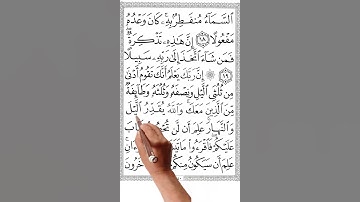 ٱلسَّمَآءُ مُنفَطِرٌۢ بِهِۦۚ كَانَ وَعْدُهُۥ
مَفْعُولًا ١٨ إِنَّ هَٰذِهِۦ تَذْكِرَةٌۖ
فَمَن شَآءَ ٱتَّخَذَ إِلَىٰ رَبِّهِۦ سَبِيلًا
١٩ إِنَّ رَبَّكَ يَعْلَمُ أَنَّكَ تَقُومُ أَدْنَىٰ
مِن ثُلُثَىِ ٱلَّيْلِ وَنِصْفَهُۥ وَثُلُثَهُۥ وَطَآئِفَةٌ
مِّنَ ٱلَّذِينَ مَعَكَۚ وَٱللَّهُ يُقَدِّرُ ٱلَّيْلَ
وَٱلنَّهَارَۚ عَلِمَ أَن لَّن تُحْصُوهُ
عَلَيْكُمْۖ فَٱقْرَءُوا۟ مَا
عَلِمَ أَن سَيَكُونُ مِنكُم